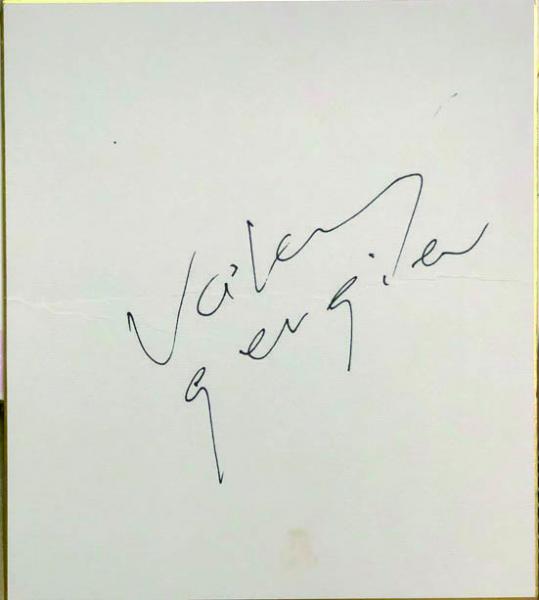 Valery
gergiev